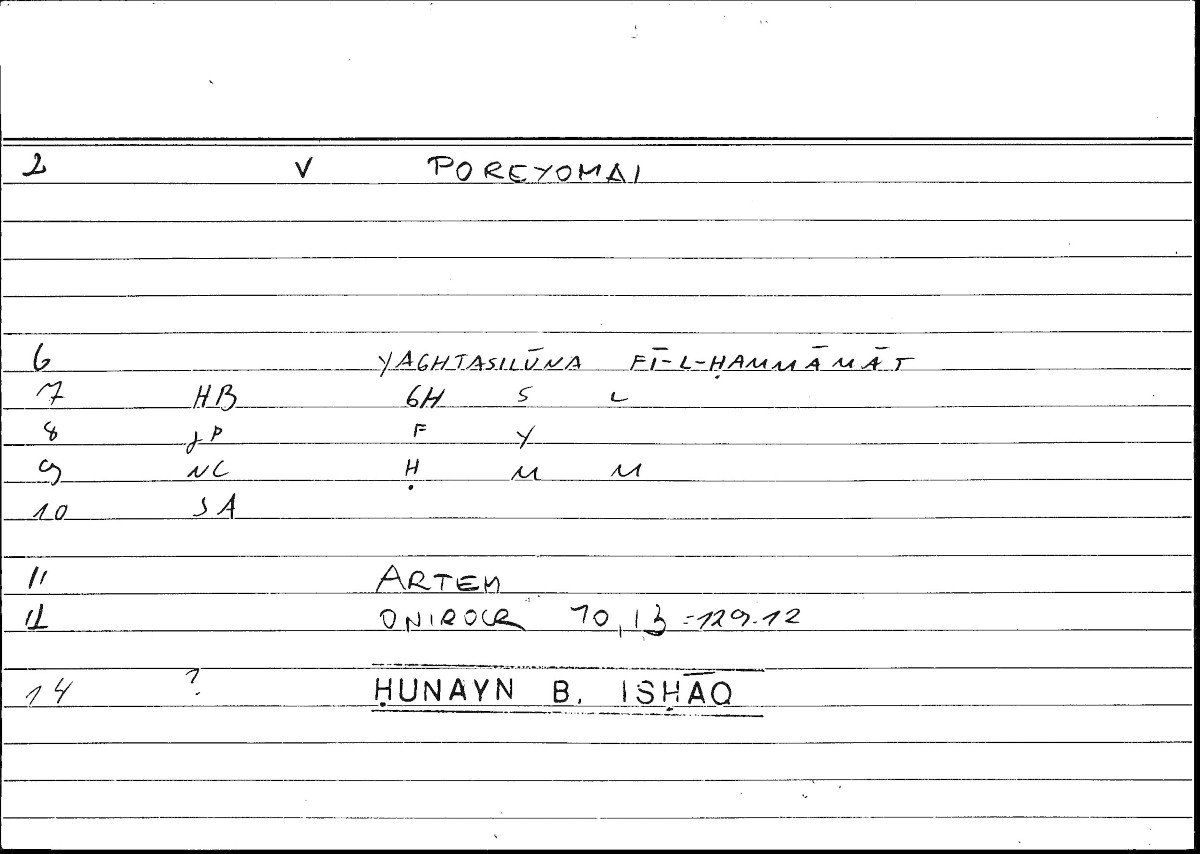 2 V POREYOMAI
6 YAGHTASILŪNA FĪ-L-ḤAMMĀMĀT
7 HB GH S L
8 JP F Y
9 NC Ḥ M M
10 SA
11 ARTEM
12 ONIROCR 70,13 = 129.12
14 ? ḤUNAYN B. ISḤĀQ